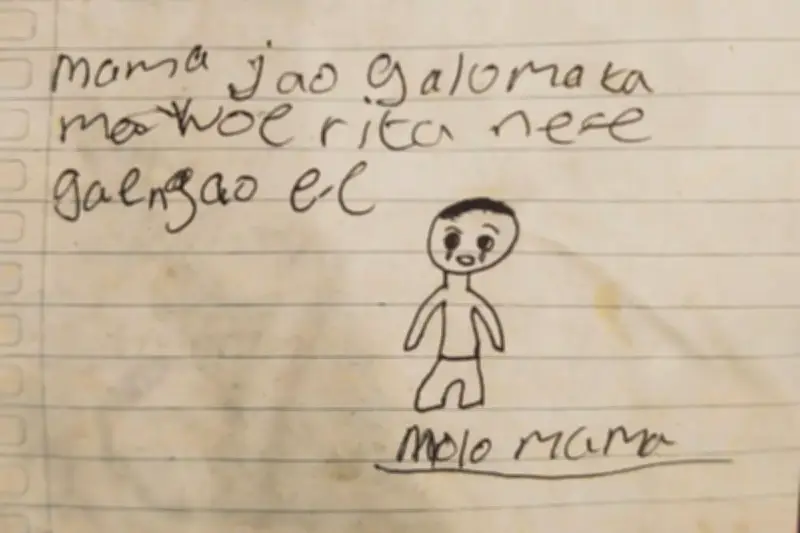 mama jao galomaka
woe rita nese
gaengao e-e
molo mama